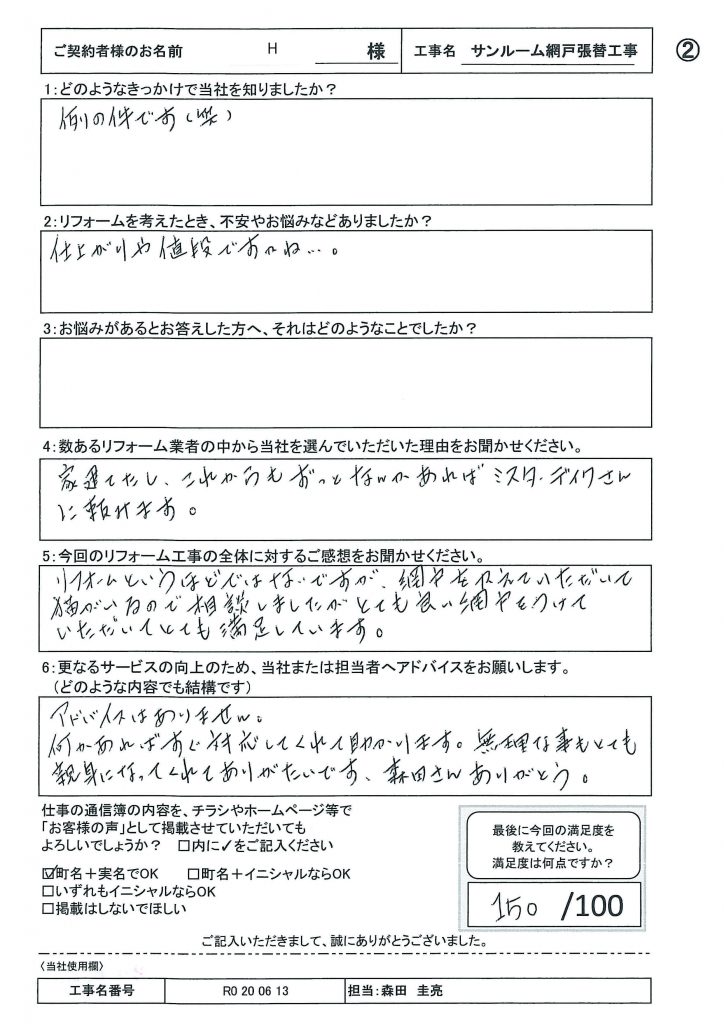 ご契約者様のお名前 H 様 工事名 サンルーム網戸張替工事 ②
1:どのようなきっかけで当社を知りましたか？
例の件です(笑)
2:リフォームを考えたとき、不安やお悩みなどありましたか？
仕上がりや値段ですかね…。
3:お悩みがあるとお答えした方へ、それはどのようなことでしたか？
4:数あるリフォーム業者の中から当社を選んでいただいた理由をお聞かせください。
家建てたし、これからもずっとなんかあればミスターデイクさん
に頼みます。
5:今回のリフォーム工事の全体に対するご感想をお聞かせください。
リフォームというほどではないですが、網戸を かえていただいて
猫がいるので相談しましたがとても良い網戸をつけて
いただいてとても満足しています。
6:更なるサービスの向上のため、当社または担当者へアドバイスをお願いします。
（どのような内容でも結構です）
アドバイスはありません。
何かあればすぐ対応してくれて助かります。無理な事もとても
親身になってくれてありがたいです、森田さんありがとう。
仕事の通信簿の内容を、チラシやホームページ等で
「お客様の声」として掲載させていただいても
よろしいでしょうか？ □内に✓をご記入ください
☑町名＋実名でOK □町名＋イニシャルならOK
□いずれもイニシャルならOK
□掲載はしないでほしい
最後に今回の満足度を
教えてください。
満足度は何点ですか？
150 /100
ご記入いただきまして、誠にありがとうございました。
〈当社使用欄〉
工事名番号 R0 20 06 13 担当:森田 圭亮